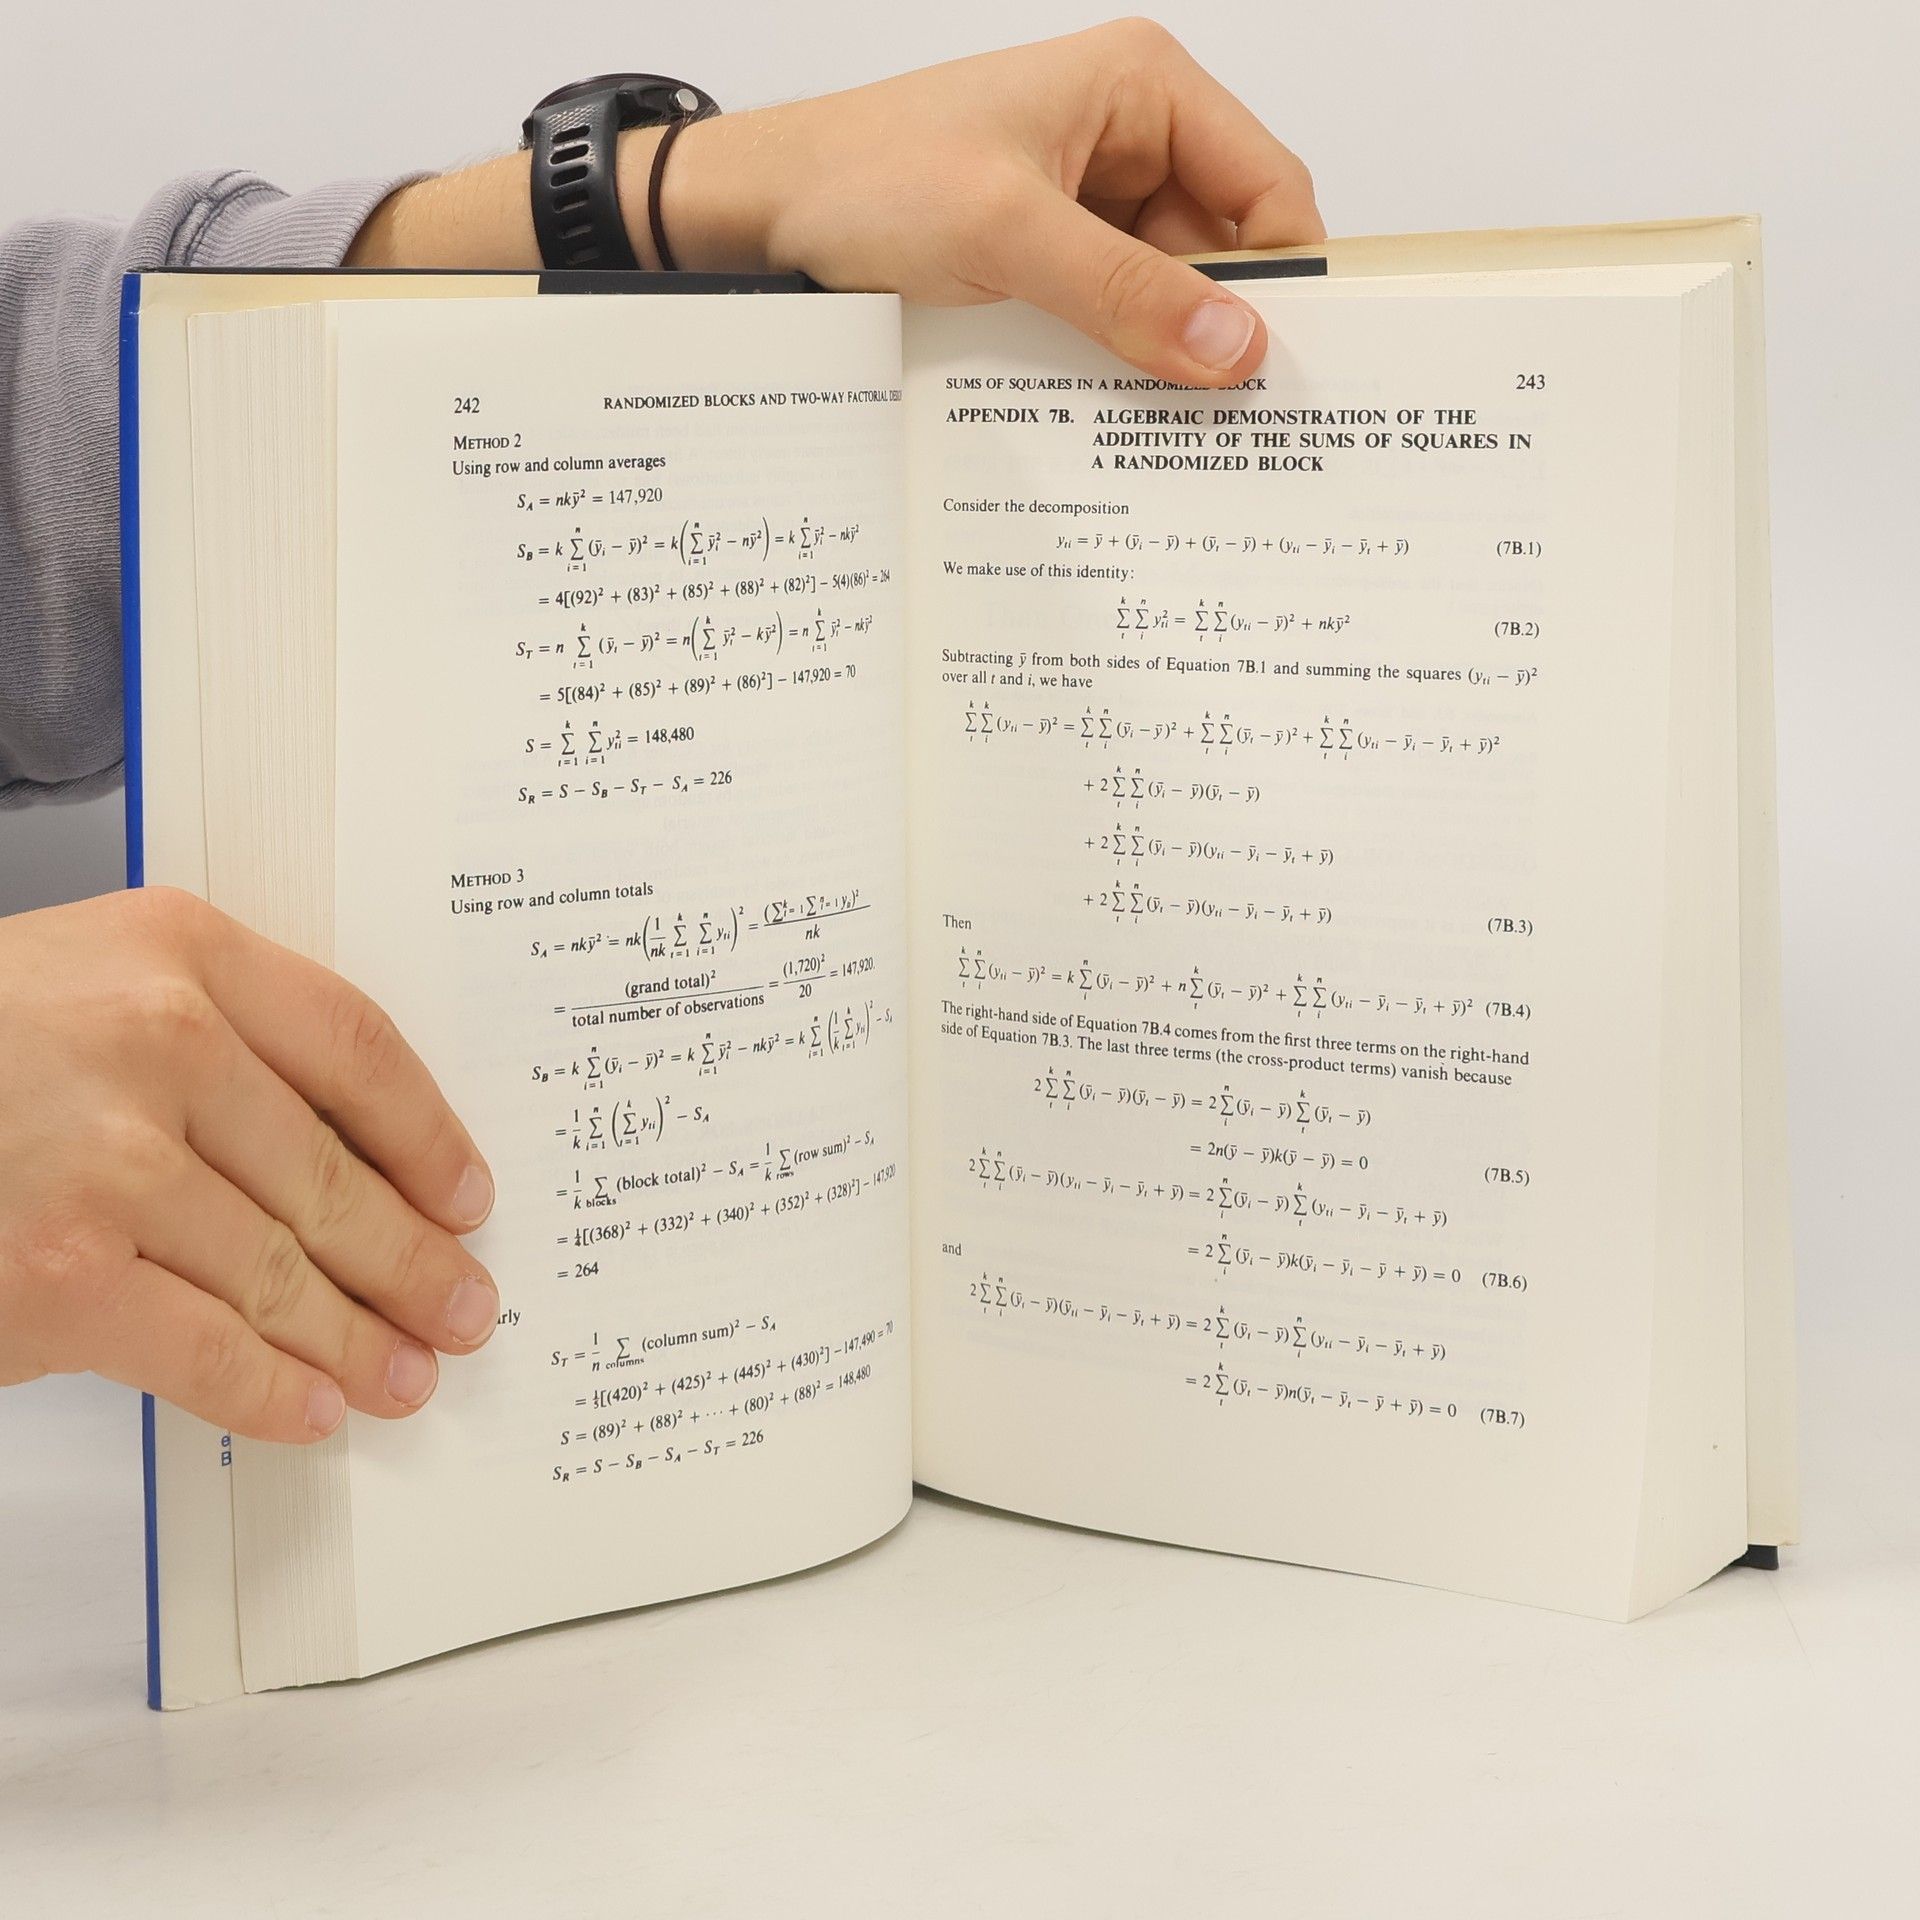 242 RANDOMIZED BLOCKS AND TWO-WAY FACTORIAL
METHOD 2
Using row and column averages
S_A = nkȳ² = 147,920
S_B = k ∑_{i=1}^{n} (ȳ_i − ȳ)² = k(∑_{i=1}^{n} ȳ_i² − nȳ²) = k ∑_{i=1}^{n} ȳ_i² − nkȳ²
= 4[(92)² + (83)² + (85)² + (88)² + (82)²] − 5(4)(86)² = 264
S_T = n ∑_{t=1}^{k} (ȳ_t − ȳ)² = n(∑_{t=1}^{k} ȳ_t² − kȳ²) = n ∑_{t=1}^{k} ȳ_t² − nkȳ²
= 5[(84)² + (85)² + (89)² + (86)²] − 147,920 = 70
S = ∑_{t=1}^{k} ∑_{i=1}^{n} y_{ti}² = 148,480
S_R = S − S_B − S_T − S_A = 226
METHOD 3
Using row and column totals
S_A = nkȳ² = nk(1/nk ∑_{t=1}^{k} ∑_{i=1}^{n} y_{ti})² = (∑_{t=1}^{k} ∑_{i=1}^{n} y_{ti})² / nk
= (grand total)² / total number of observations = (1,720)² / 20 = 147,920.
S_B = k ∑_{i=1}^{n} (ȳ_i − ȳ)² = k ∑_{i=1}^{n} ȳ_i² − nkȳ² = k ∑_{i=1}^{n} (1/k ∑_{t=1}^{k} y_{ti})² − S_A
= 1/k ∑_{i=1}^{n} (∑_{t=1}^{k} y_{ti})² − S_A
= 1/k ∑_{blocks} (block total)² − S_A = 1/k ∑_{rows} (row sum)² − S_A
= ¼[(368)² + (332)² + (340)² + (352)² + (328)²] − 147,920
= 264
rly
S_T = 1/n ∑_{columns} (column sum)² − S_A
= ⅕[(420)² + (425)² + (445)² + (430)²] − 147,490 = 70
S = (89)² + (88)² + ⋯ + (80)² + (88)² = 148,480
S_R = S − S_B − S_A − S_T = 226
e
B
SUMS OF SQUARES IN A RANDOMIZED BLOCK 243
APPENDIX 7B. ALGEBRAIC DEMONSTRATION OF THE
ADDITIVITY OF THE SUMS OF SQUARES IN
A RANDOMIZED BLOCK
Consider the decomposition
y_{ti} = ȳ + (ȳ_i − ȳ) + (ȳ_t − ȳ) + (y_{ti} − ȳ_i − ȳ_t + ȳ) (7B.1)
We make use of this identity:
∑_t^k ∑_i^n y_{ti}² = ∑_t^k ∑_i^n (y_{ti} − ȳ)² + nkȳ² (7B.2)
Subtracting ȳ from both sides of Equation 7B.1 and summing the squares (y_{ti} − ȳ)²
over all t and i, we have
∑_t^k ∑_i^k (y_{ti} − ȳ)² = ∑_t^k ∑_i^n (ȳ_i − ȳ)² + ∑_t^k ∑_i^n (ȳ_t − ȳ)² + ∑_t^k ∑_i^n (y_{ti} − ȳ_i − ȳ_t + ȳ)²
+ 2 ∑_t^k ∑_i^n (ȳ_i − ȳ)(ȳ_t − ȳ)
+ 2 ∑_t^k ∑_i^n (ȳ_i − ȳ)(y_{ti} − ȳ_i − ȳ_t + ȳ)
+ 2 ∑_t^k ∑_i^n (ȳ_t − ȳ)(y_{ti} − ȳ_i − ȳ_t + ȳ) (7B.3)
Then
∑_t^k ∑_i^n (y_{ti} − ȳ)² = k ∑_i^n (ȳ_i − ȳ)² + n ∑_t^k (ȳ_t − ȳ)² + ∑_t^k ∑_i^n (y_{ti} − ȳ_i − ȳ_t + ȳ)² (7B.4)
The right-hand side of Equation 7B.4 comes from the first three terms on the right-hand
side of Equation 7B.3. The last three terms (the cross-product terms) vanish because
2 ∑_t^k ∑_i^n (ȳ_i − ȳ)(ȳ_t − ȳ) = 2 ∑_i^n (ȳ_i − ȳ) ∑_t^k (ȳ_t − ȳ)
= 2n(ȳ − ȳ)k(ȳ − ȳ) = 0 (7B.5)
2 ∑_t^k ∑_i^n (ȳ_i − ȳ)(y_{ti} − ȳ_i − ȳ_t + ȳ) = 2 ∑_i^n (ȳ_i − ȳ) ∑_t^k (y_{ti} − ȳ_i − ȳ_t + ȳ)
= 2 ∑_i^n (ȳ_i − ȳ)k(ȳ_i − ȳ_i − ȳ + ȳ) = 0 (7B.6)
and
2 ∑_t^k ∑_i^n (ȳ_t − ȳ)(ȳ_{ti} − ȳ_i − ȳ_t + ȳ) = 2 ∑_t^k (ȳ_t − ȳ) ∑_i^n (y_{ti} − ȳ_i − ȳ_t + ȳ)
= 2 ∑_t^k (ȳ_t − ȳ)n(ȳ_t − ȳ_t − ȳ + ȳ) = 0 (7B.7)